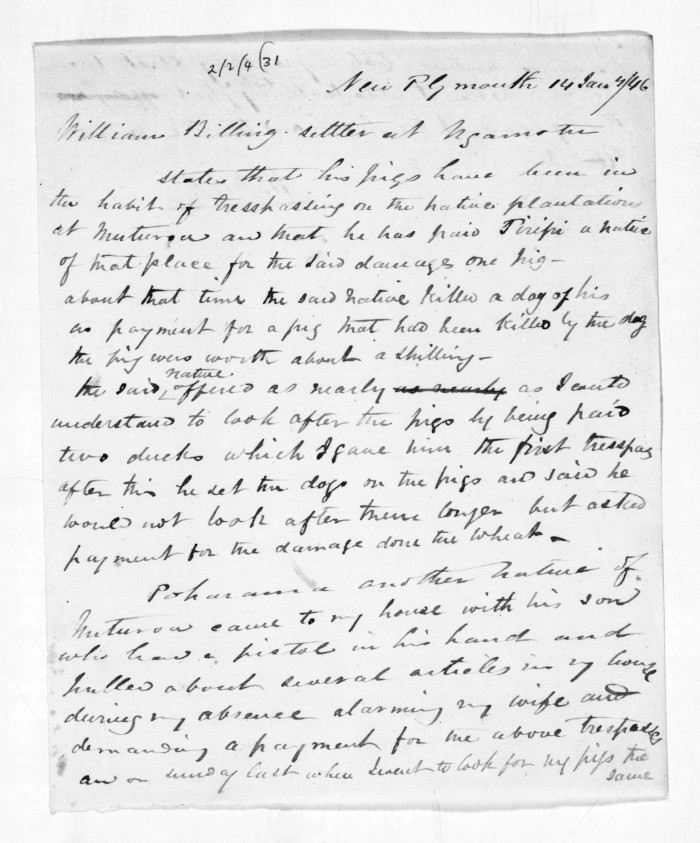 2/2/4 (31
New Plymouth 14 Jany/46
William Billing settler at Ngamotu
states that his pigs have been in
the habit of tresspassing on the native plantations
at Muturoa and that he has paid Tiripi a native
of that place for the said damages one pig—
about that time the said Native killed a dog of his
as payment for a pig that had been killed by the dog
the pig were worth about a shilling—
the said native offered as nearly as nearly as I could
understand to look after the pigs by being paid
two ducks which I gave him the first tresspass
after this he set the dogs on the pigs and said he
would not look after them longer but asked
payment for the damage done the wheat—
Poharama another Native of
Muturoa came to my house with his son
who had a pistol in his hand and
pulled about several articles in my house
during my absence alarming my wife and
demanding a payment for the above trespasses
and on sunday last when I went to look for my pigs the
same